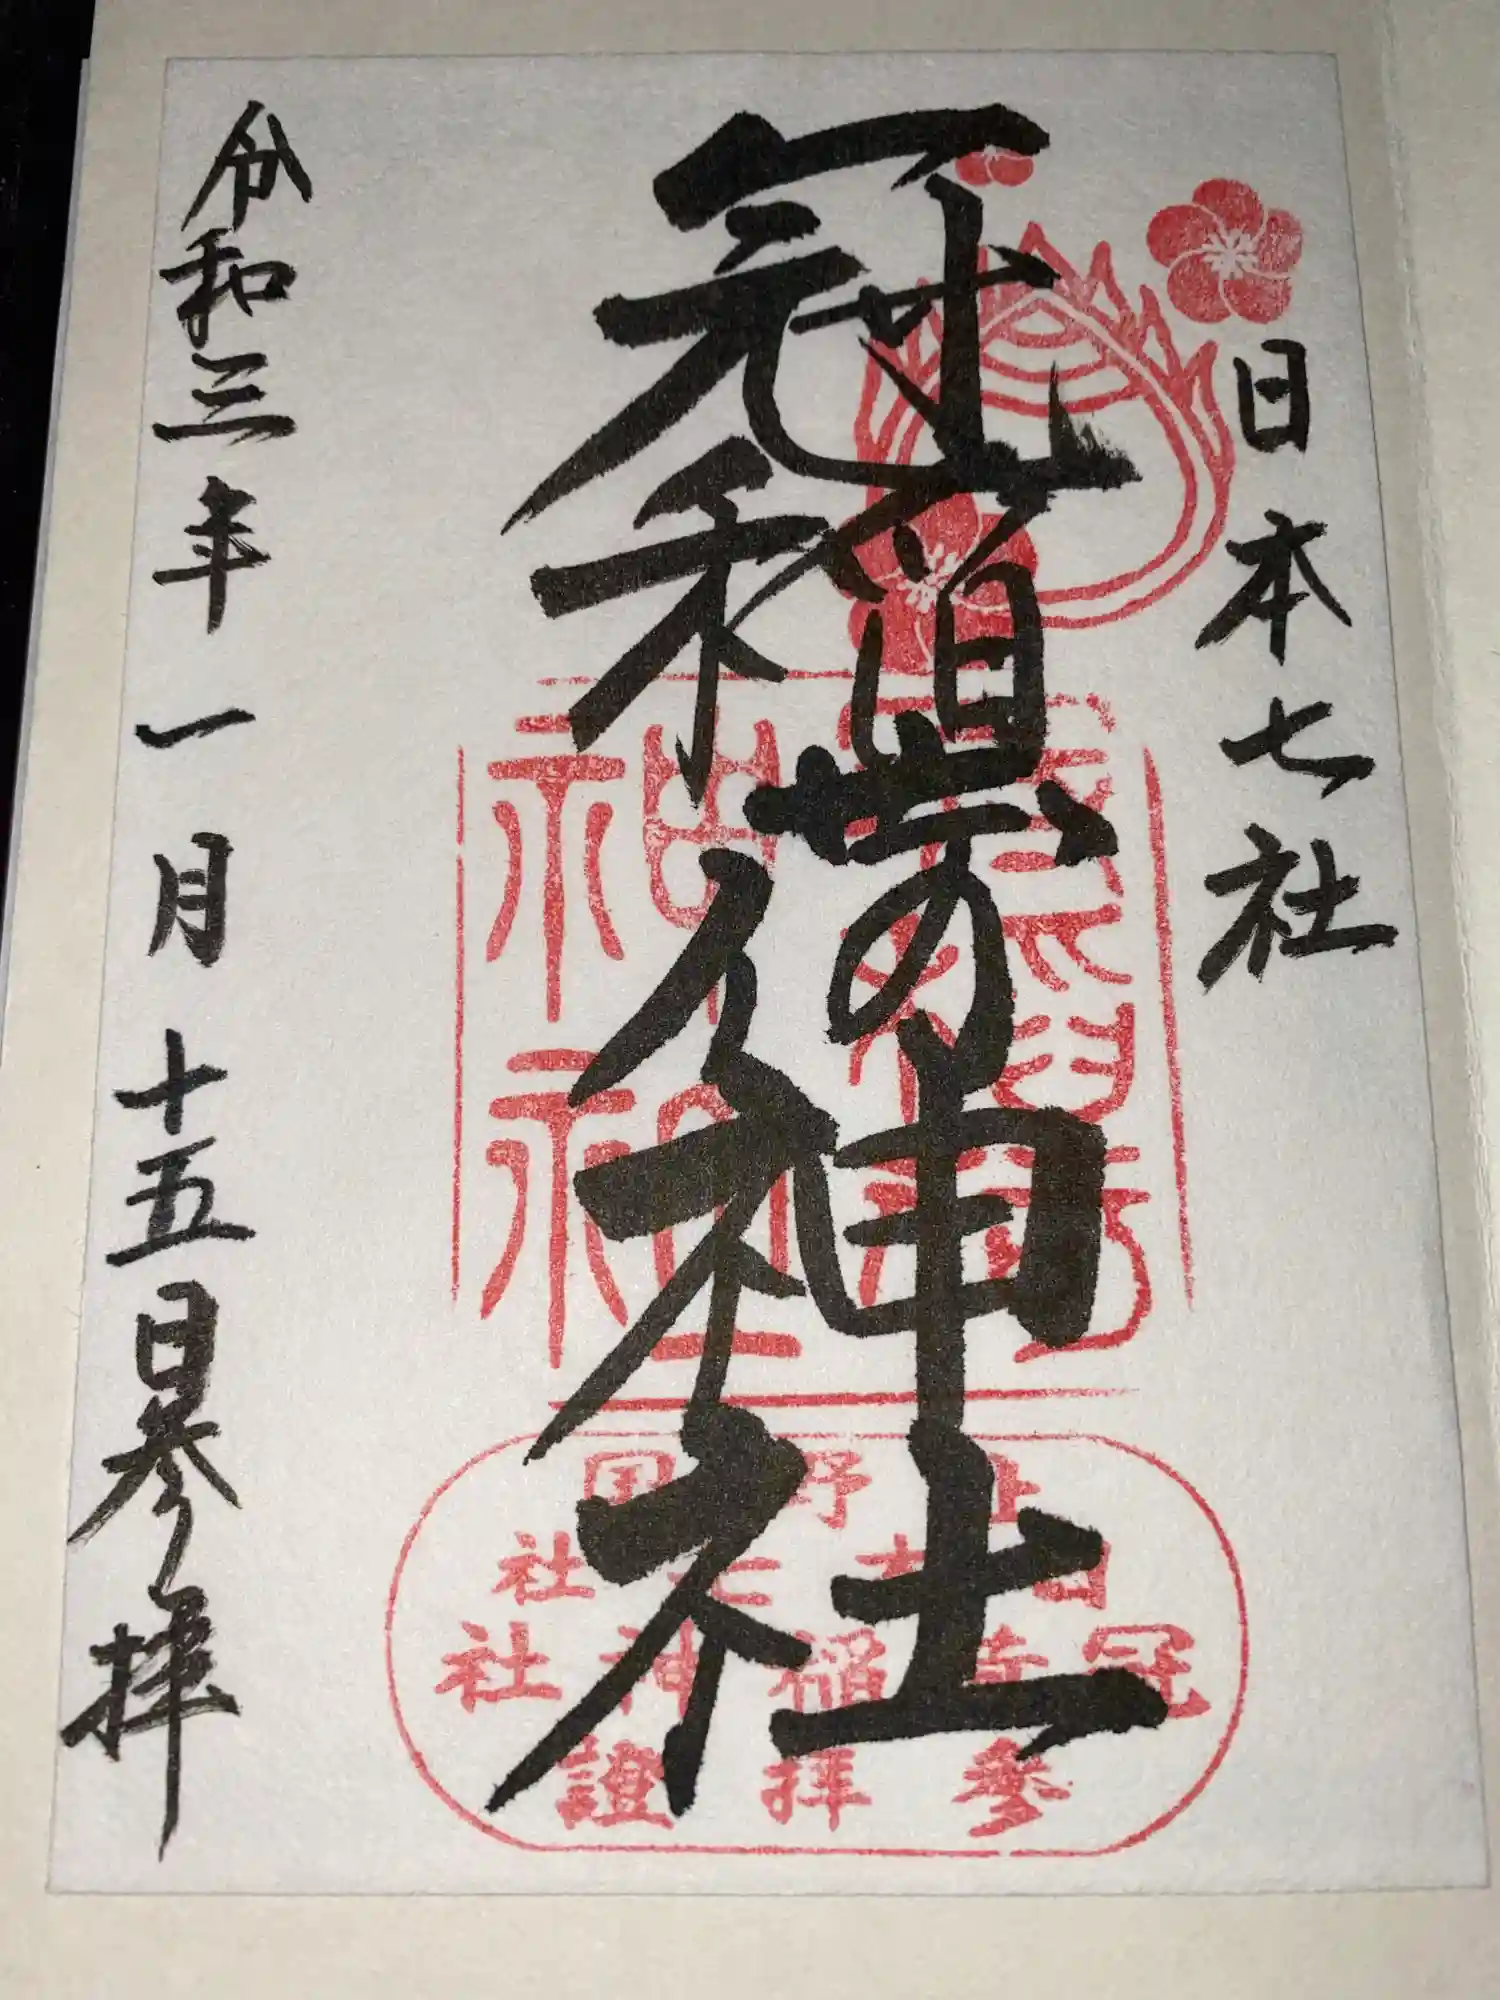 日本七社
冠稲荷神社
令和三年一月十五日参拝
稲荷
神社
上野国
日本七社
冠稲荷神社
参拝證